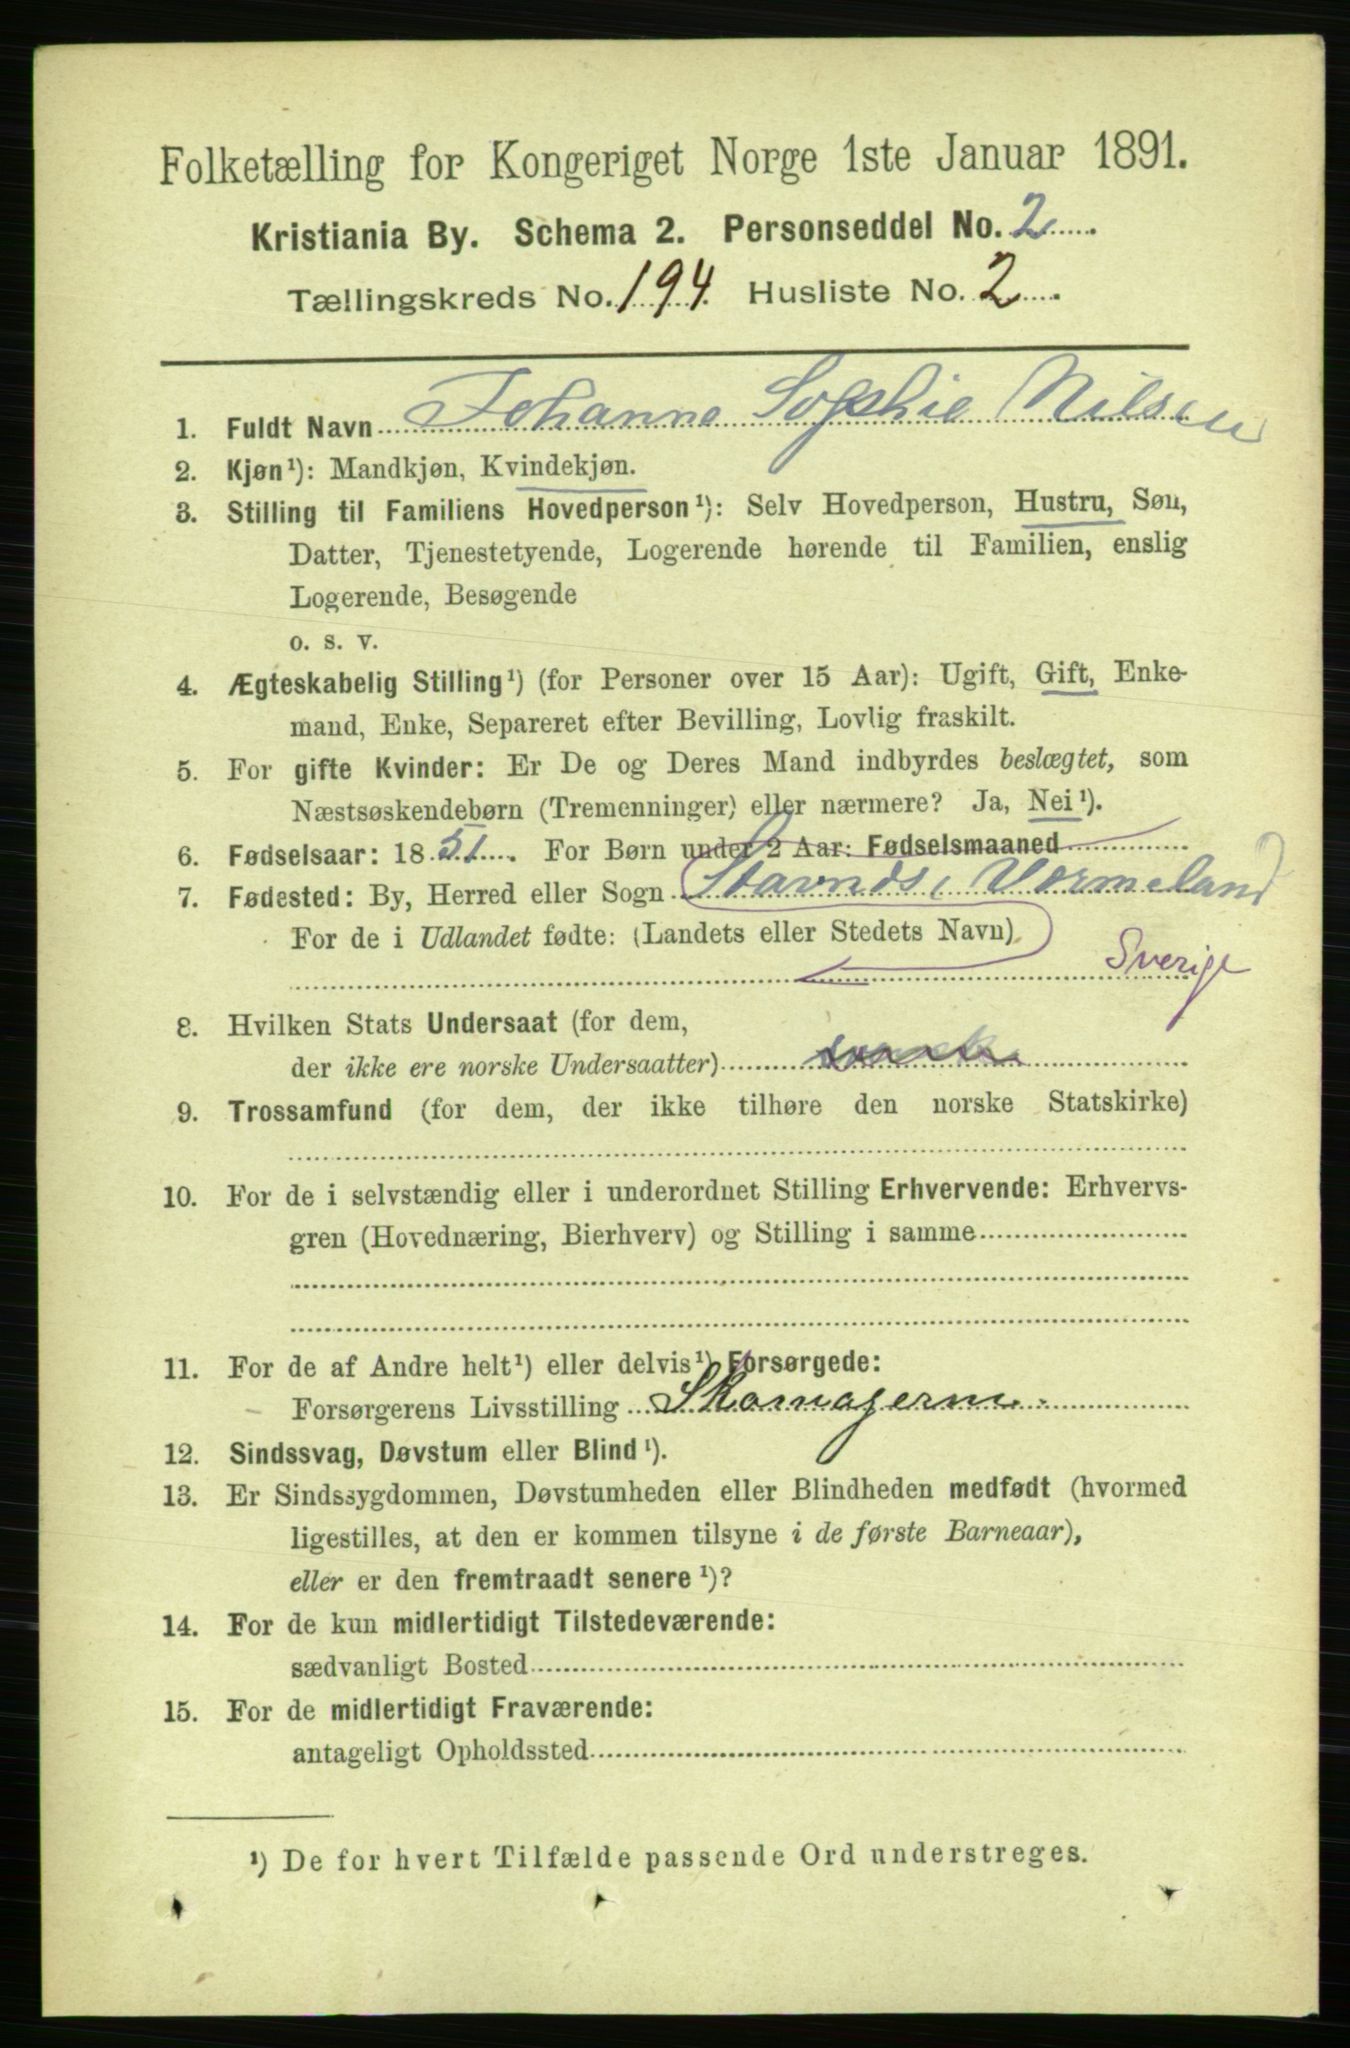 Folketælling for Kongeriget Norge 1ste Januar 1891.
Kristiania By. Schema 2. Personseddel No. 2
Tællingskreds No. 194 Husliste No. 2
1. Fuldt Navn Johanne Sophie Nilsen
2. Kjøn¹): Mandkjøn, Kvindekjøn.
3. Stilling til Familiens Hovedperson¹): Selv Hovedperson, Hustru, Søn,
Datter, Tjenestetyende, Logerende hørende til Familien, enslig
Logerende, Besøgende
o. s. v.
4. Ægteskabelig Stilling¹) (for Personer over 15 Aar): Ugift, Gift, Enke-
mand, Enke, Separeret efter Bevilling, Lovlig fraskilt.
5. For gifte Kvinder: Er De og Deres Mand indbyrdes beslægtet, som
Næstsøskendebørn (Tremenninger) eller nærmere? Ja, Nei¹).
6. Fødselsaar: 1851. For Børn under 2 Aar: Fødselsmaaned
7. Fødested: By, Herred eller Sogn Stavnds, Vermeland
For de i Udlandet fødte: (Landets eller Stedets Navn)
Sverige
8. Hvilken Stats Undersaat (for dem,
der ikke ere norske Undersaatter)
9. Trossamfund (for dem, der ikke tilhøre den norske Statskirke)
10. For de i selvstændig eller i underordnet Stilling Erhvervende: Erhvervs-
gren (Hovednæring, Bierhverv) og Stilling i samme
11. For de af Andre helt¹) eller delvis¹) Forsørgede:
Forsørgerens Livsstilling
12. Sindssvag, Døvstum eller Blind¹).
13. Er Sindssygdommen, Døvstumheden eller Blindheden medfødt (hvormed
ligestilles, at den er kommen tilsyne i de første Barneaar),
eller er den fremtraadt senere¹)?
14. For de kun midlertidigt Tilstedeværende:
sædvanligt Bosted
15. For de midlertidigt Fraværende:
antageligt Opholdssted
¹) De for hvert Tilfælde passende Ord understreges.